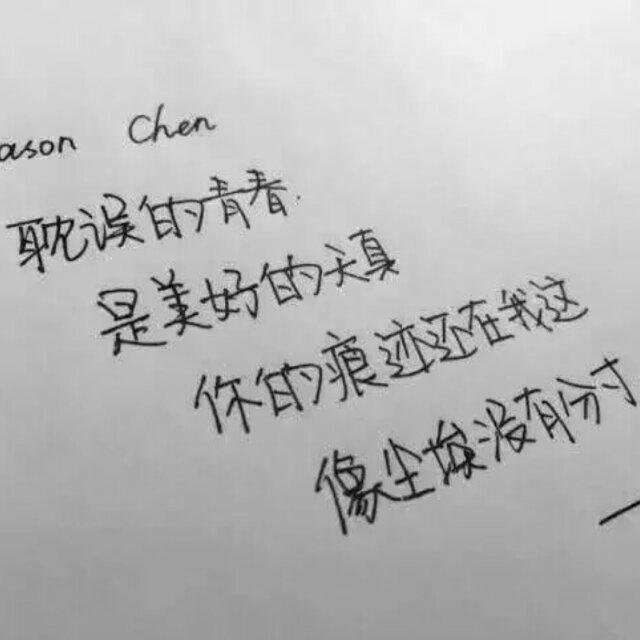 ason Chen
耽误的青春.
是美好的天真
你的痕迹还在我这
像尘埃没有分寸